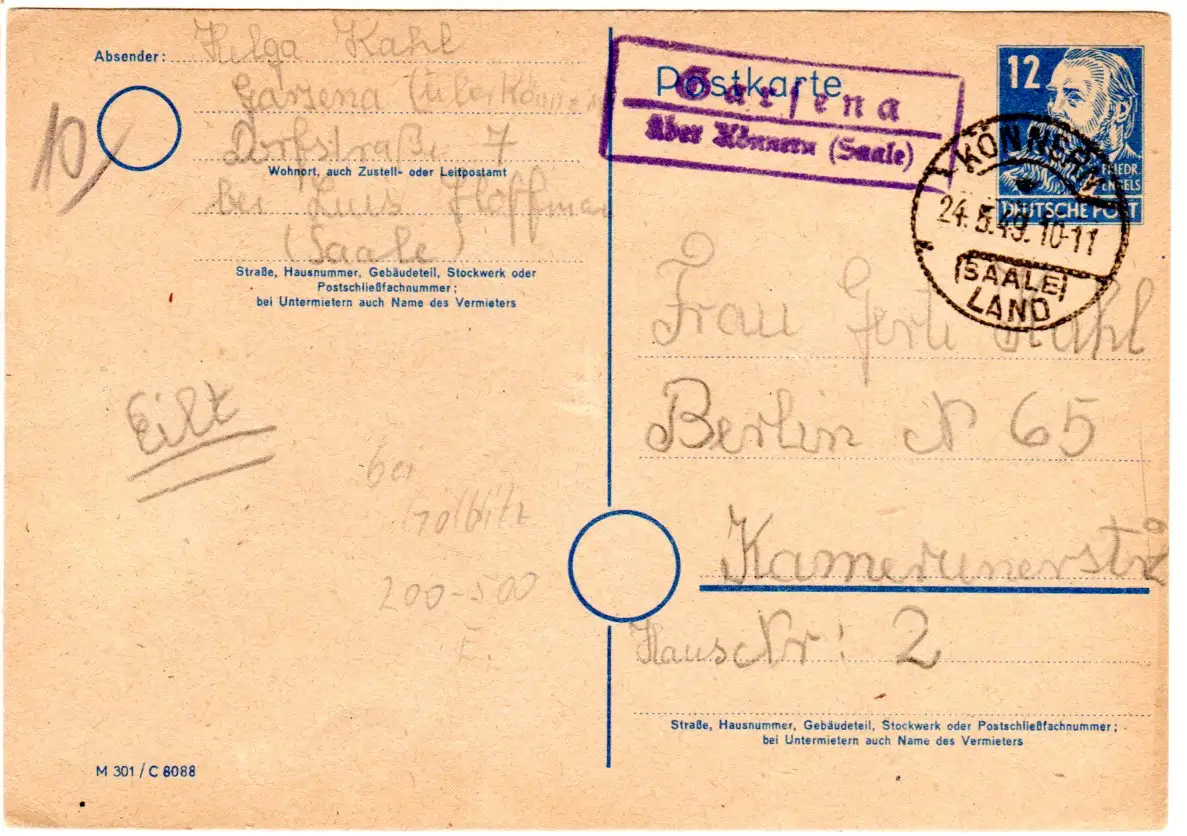 Absender: Helga Kahl
Garsena (über Könnern
Dorfstraße 7
Wohnort, auch Zustell- oder Leitpostamt
bei Luis Hoffman
(Saale)
Straße, Hausnummer, Gebäudeteil, Stockwerk oder
Postschließfachnummer;
bei Untermietern auch Name des Vermieters
10
Eilt
bei
200-500
E.
M 301 / C 8088
Postkarte
Garsena
über Könnern (Saale)
12
FRIEDR.
ENGELS
DEUTSCHE POST
KÖNNERN
24.5.49. 10-11
(SAALE)
LAND
Frau Kahl
Berlin N 65
Kamerunerstr
Haus Nr: 2
Straße, Hausnummer, Gebäudeteil, Stockwerk oder Postschließfachnummer;
bei Untermietern auch Name des Vermieters